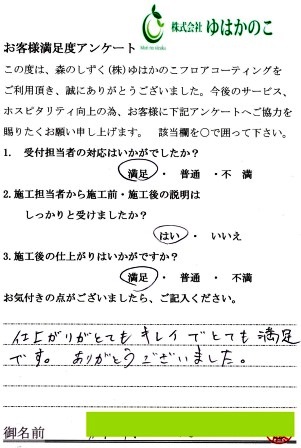 株式会社 ゆはかのこ
Mori no shizuku
お客様満足度アンケート
この度は、森のしずく(株)ゆはかのこフロアコーティングを
ご利用頂き、誠にありがとうございました。今後のサービス、
ホスピタリティ向上の為、お客様に下記アンケートへご協力を
賜りたくお願い申し上げます。 該当欄を○で囲って下さい。
1. 受付担当者の対応はいかがでしたか?
満足 ・ 普通 ・ 不 満
2. 施工担当者から施工前・施工後の説明は
しっかりと受けましたか?
はい ・ いいえ
3. 施工後の仕上がりはいかがですか?
満足 ・ 普通 ・ 不満
お気付きの点がございましたら、ご記入ください。
仕上がりがとてもキレイでとても満足
です。ありがとうございました。
御名前